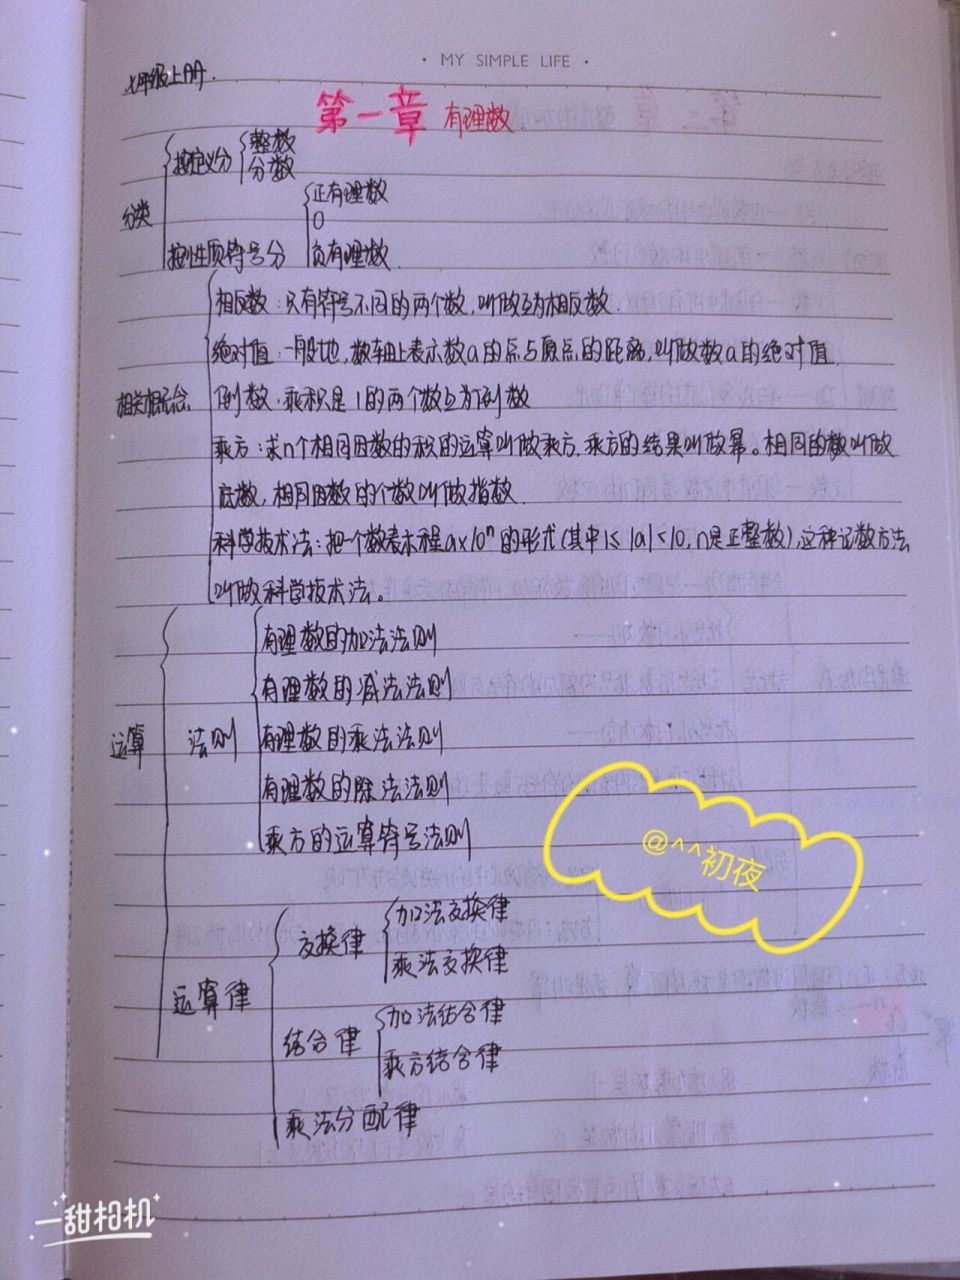 · MY SIMPLE LIFE ·
七年级上册.
第一章 有理数
分类
按定义分
整数
分数
按性质符号分
正有理数
0
负有理数.
相关概念
相反数:只有符号不同的两个数,叫做互为相反数.
绝对值:一般地,数轴上表示数a的点与原点的距离,叫做数a的绝对值.
倒数:乘积是1的两个数互为倒数
乘方:求n个相同因数的积的运算叫做乘方.乘方的结果叫做幂。相同的数叫做
底数,相同因数的个数叫做指数.
科学技术法:把一个数表示程a×10ⁿ的形式(其中1≤|a|<10,n是正整数),这种记数方法
叫做科学技术法。
运算
法则
有理数的加法法则
有理数的减法法则
有理数的乘法法则
有理数的除法法则
乘方的运算符号法则
运算律
交换律
加法交换律
乘法交换律
结合律
加法结合律
乘方结合律
乘法分配律
@^^初夜
一甜相机